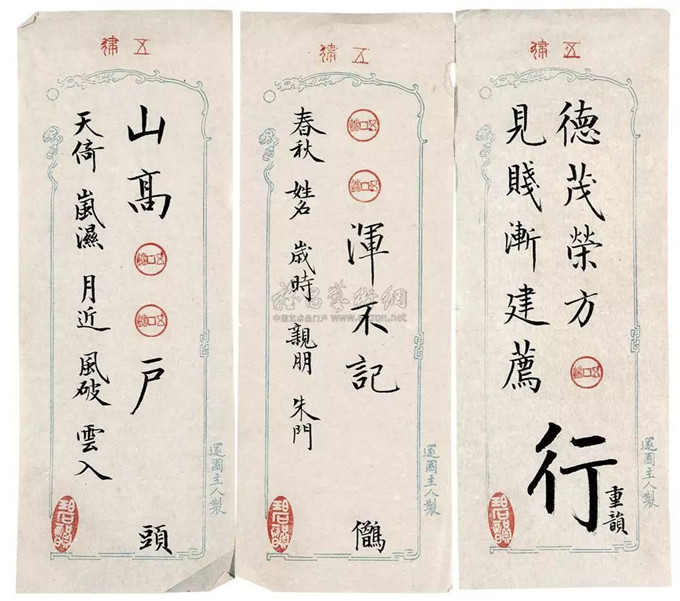 五律
德茂榮方
見賤漸建薦
行
重韻
園主人製
五律
渾不記
春秋 姓名 歲時 親朋 朱門
五律
山髙 戶
天倚 嵐濕 月近 風破 雲入
頭
園主人製
雅昌藝術網
中国艺术品门户 www.artron.net